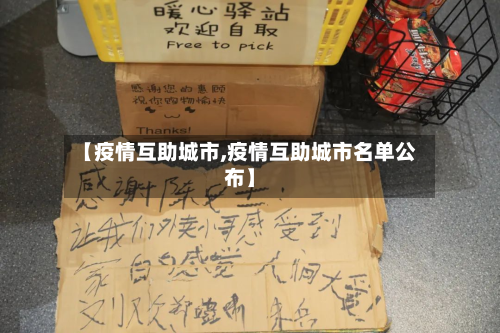 暖心驿站
欢迎自取
Free to pick
感谢您的惠顾
祝你购物愉快
Thanks!
【疫情互助城市,疫情互助城市名单公
布】
感谢陈女士!
让我们外卖小哥感受到
家自己感觉 人间大爱!